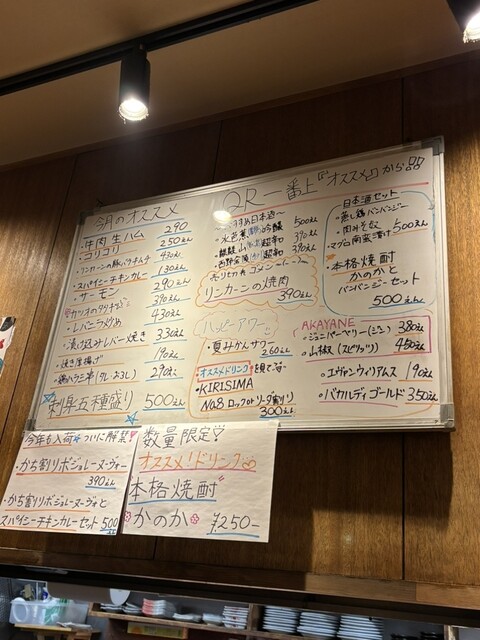 今月のオススメ
・牛肉生ハム 290
・コリコリ 250えん
・リンカーンの豚バラキムチ 430えん
・スパイシーチキンカレー 130えん
・サーモン 290えん
390えん
・レバニラ炒め 430えん
・漬け込みレバー焼き 330えん
・焼き厚揚げ 190えん
・鶏ハラミ串(タレ・おろし) 290えん
刺身五種盛り 500えん
QR一番上『オススメ』から
水芭蕉 吟醸 500えん
390えん
390えん
リンカーンの焼肉
390えん
ハッピーアワー
・夏みかんサワー
260えん
オススメドリンク
・KIRISIMA
No.8 ロックorソーダ割り
300えん
日本酒セット
・蒸し鶏バンバンジー
・肉みそなす
・マグロ南蛮漬け 500えん
・本格焼酎
かのかと
バンバンジーセット
500えん
AKAYANE
・ジュニパーベリー(ジン) 380えん
・山椒(スピリッツ) 450えん
・エヴァンウィリアムス 190えん
・バカルディゴールド 350えん
今年も入荷★ついに解禁!
・かち割りボジョレーヌーヴォー
390えん
・かち割りボジョレーヌーヴォと
スパイシーチキンカレーセット 500えん
数量限定♡
オススメ!ドリンク
本格焼酎
かのか
¥250-